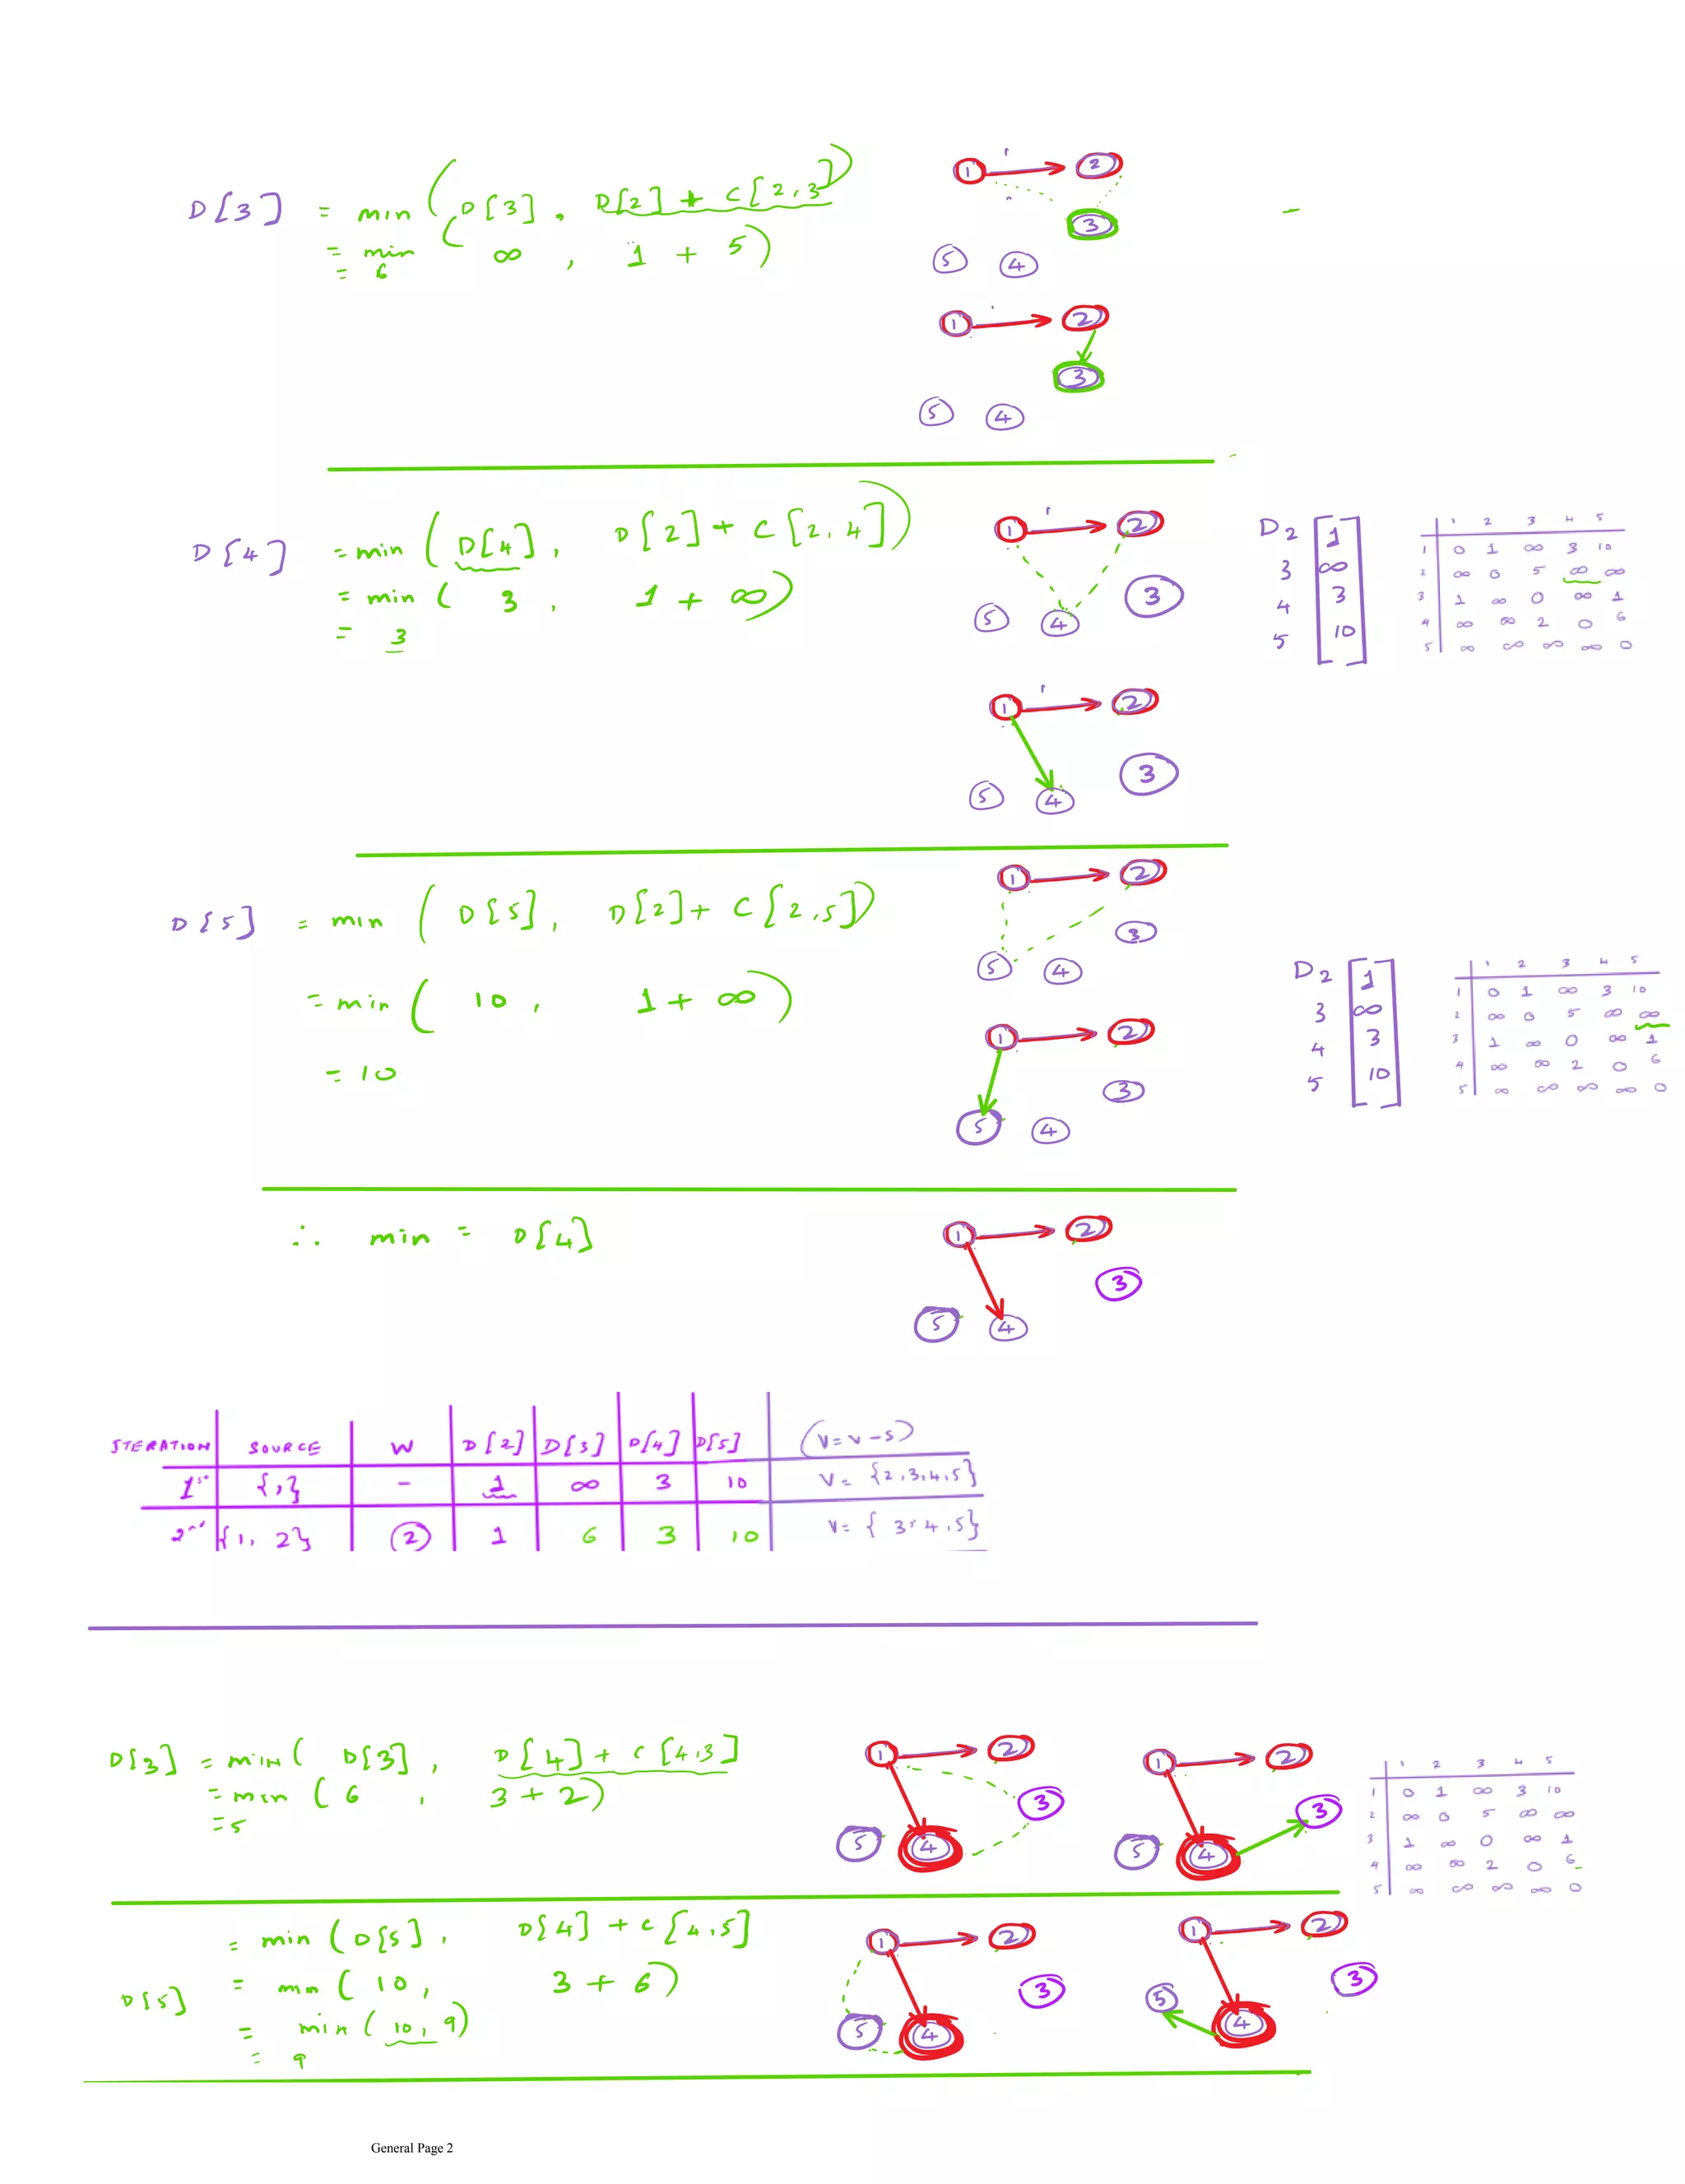 D[3] = min ( D[3] , D[2] + C[2,3] )
= min ( ∞ , 1 + 5 )
= 6
1 2
3
5 4
1 2
3
5 4
D[4] = min ( D[4] , D[2] + C[2,4] )
= min ( 3 , 1 + ∞ )
= 3
1 2
3
5 4
D2 1
3 ∞
4 3
5 10
1 2 3 4 5
1 0 1 ∞ 3 10
2 ∞ 0 5 ∞ ∞
3 1 ∞ 0 ∞ 1
4 ∞ ∞ 2 0 6
5 ∞ ∞ ∞ ∞ 0
1 2
3
5 4
D[5] = min ( D[5] , D[2] + C[2,5] )
= min ( 10 , 1 + ∞ )
= 10
1 2
3
5 4
1 2
3
5 4
D2 1
3 ∞
4 3
5 10
1 2 3 4 5
1 0 1 ∞ 3 10
2 ∞ 0 5 ∞ ∞
3 1 ∞ 0 ∞ 1
4 ∞ ∞ 2 0 6
5 ∞ ∞ ∞ ∞ 0
∴ min = D[4]
1 2
3
5 4
ITERATION SOURCE W D[2] D[3] D[4] D[5] (V=V-S)
1st {1} - 1 ∞ 3 10 V= {2,3,4,5}
2nd {1, 2} 2 1 6 3 10 V= { 3,4,5}
D[3] = min ( D[3] , D[4] + C[4,3]
= min ( 6 , 3 + 2 )
= 5
1 2
3
5 4
1 2
3
5 4
1 2 3 4 5
1 0 1 ∞ 3 10
2 ∞ 0 5 ∞ ∞
3 1 ∞ 0 ∞ 1
4 ∞ ∞ 2 0 6
5 ∞ ∞ ∞ ∞ 0
= min ( D[5] , D[4] + C[4,5]
D[5] = min ( 10 , 3 + 6 )
= min ( 10, 9 )
= 9
1 2
3
5 4
1 2
3
5 4
General Page 2